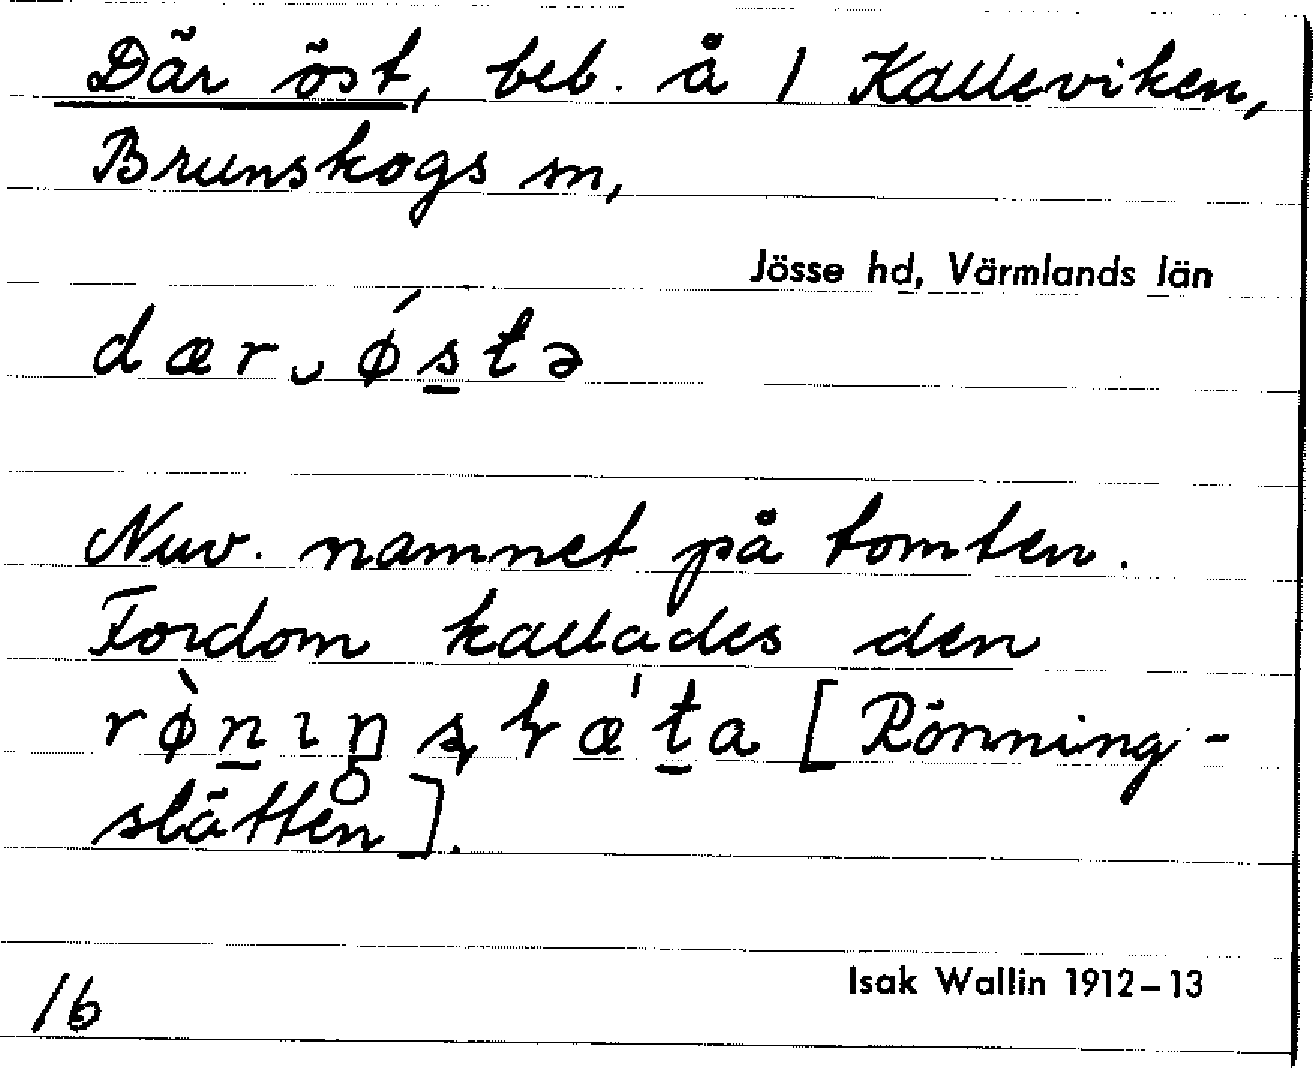 Där öst, beb. å 1 Kalleviken,
Brunskogs sn,
Jösse hd, Värmlands län
dær ǿstə
Nuv. namnet på tomten.
Fordom kallades den
[Rönning-
slätten].
16
Isak Wallin 1912–13